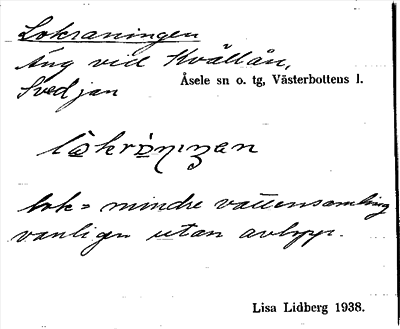 Lokraningen
Äng vid Kvällån,
Åsele sn o. tg, Västerbottens l.
Svedjan
lok = mindre vattensamling
vanligen utan avlopp.
Lisa Lidberg 1938.